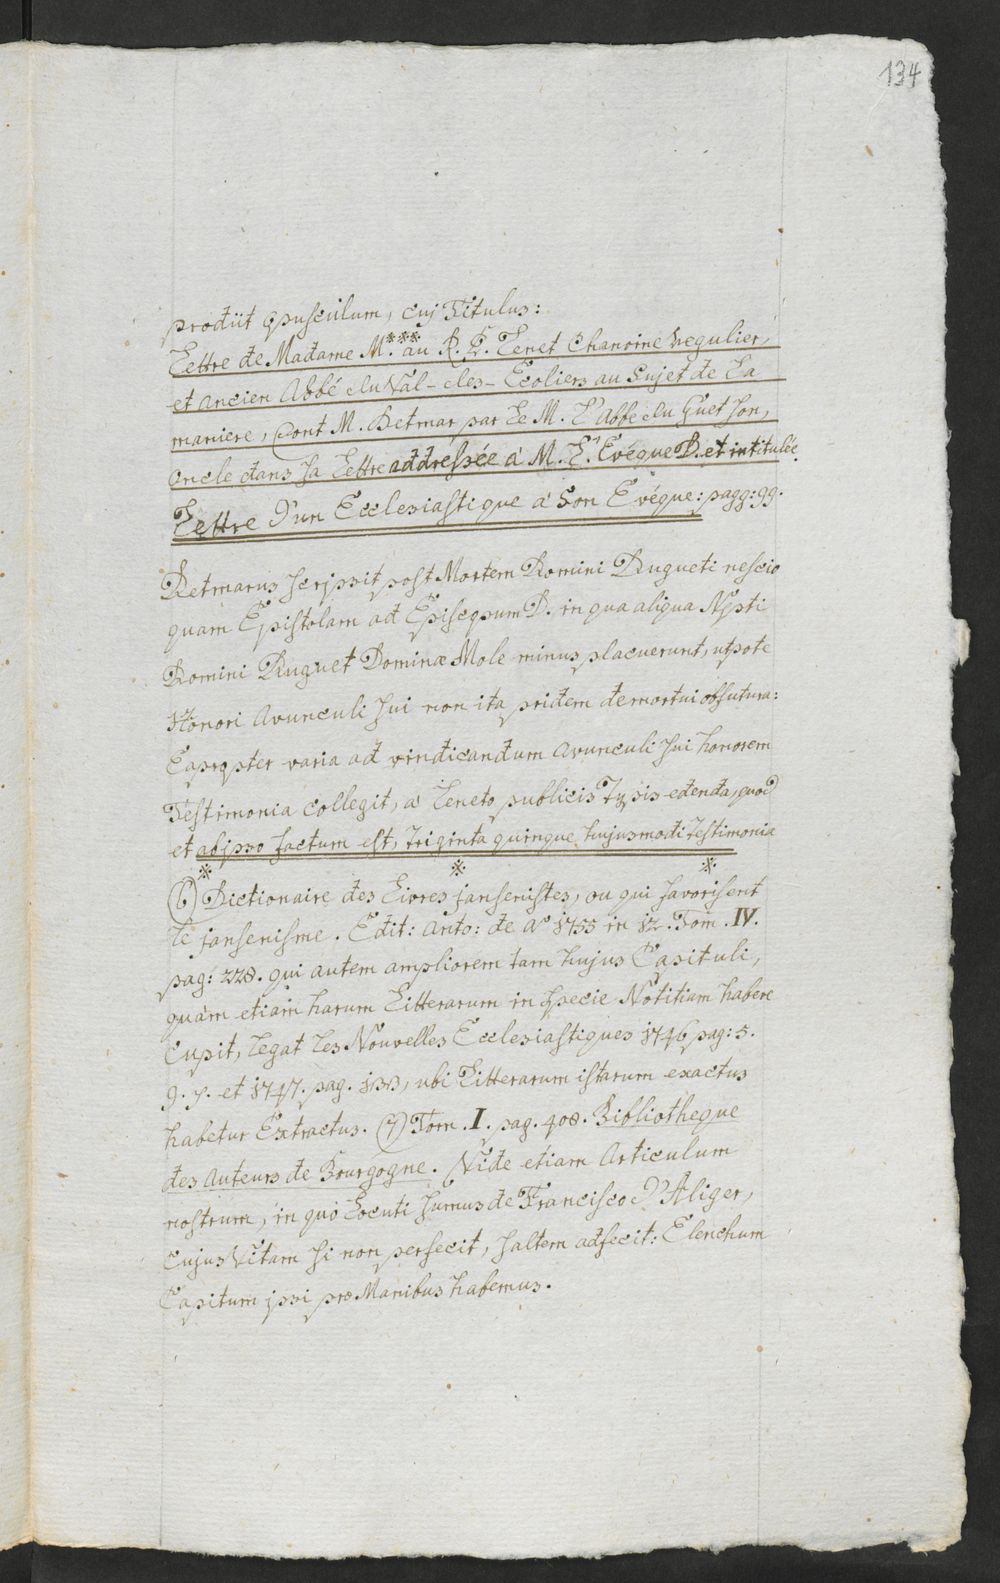 134
prodiit opusculum, cuj Titulus:
Lettre de Madame M.*** au R. P. Lenet Chanoine Regulier,
et ancien Abbé du Val-des-Ecoliers au Sujet de La
maniere, Dont M. Detmar par Le M. L'Abbe du Guet Son,
Oncle dans Sa Lettre addressée á M. L'Evéque D. et intitulée
Lettre D'un Ecclesiastique a Son Evéque: pagg: 99.
Detmarus scripsit post Mortem Domini Dugueti nescio
quam Epistolam ad Episcopum D. in qua aliqua Nepti
Domini Duguet Dominæ Mole minus placuerunt, utpote
Honori avunculi sui non ita pridem demortui obfutura:
Eapropter varia ad vindicandum avunculi sui honorem
Testimonia collegit, a Leneto publicis Typis edenda, quod
et ab ipso factum est, Triginta quinque hujusmodi Testimonia
* * *
(6) Dictionaire des Livres jansenistes, ou qui favorisent
le jansenisme. Edit: anto: de Aº 1755 in 12. Tom. IV.
pag: 228. qui autem ampliorem tam hujus Capituli,
quàm etiam harum Litterarum in Specie Notitiam habere
Cupit, legat les Nouvelles Ecclesiastiques 1746 pag: 5.
9. 7. et 1747. pag. 133, ubi Litterarum istarum exactus
habetur Extractus. (7) Tom. I. pag. 408. Bibliotheque
des Auteurs de Bourgogne. Vide etiam Articulum
nostrum, in quo Locuti sumus de Francisco D'Aliger,
cujus Vitam si non perfecit, saltem adfecit: Elenchum
Capitum ipsi præ Manibus habemus.